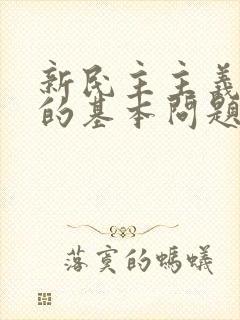 新民主主義
的基本問題
落寞的螞蟻